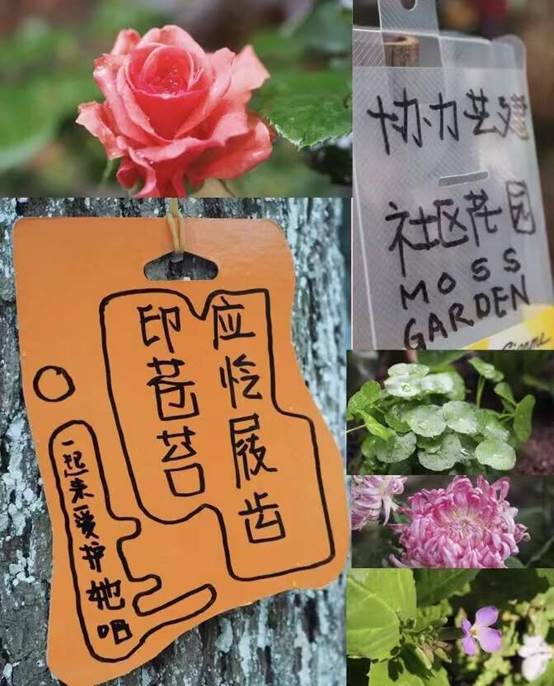 协力艺建
社区花园
MOSS
GARDEN
应怜履齿
印苍苔
一起来爱护她吧